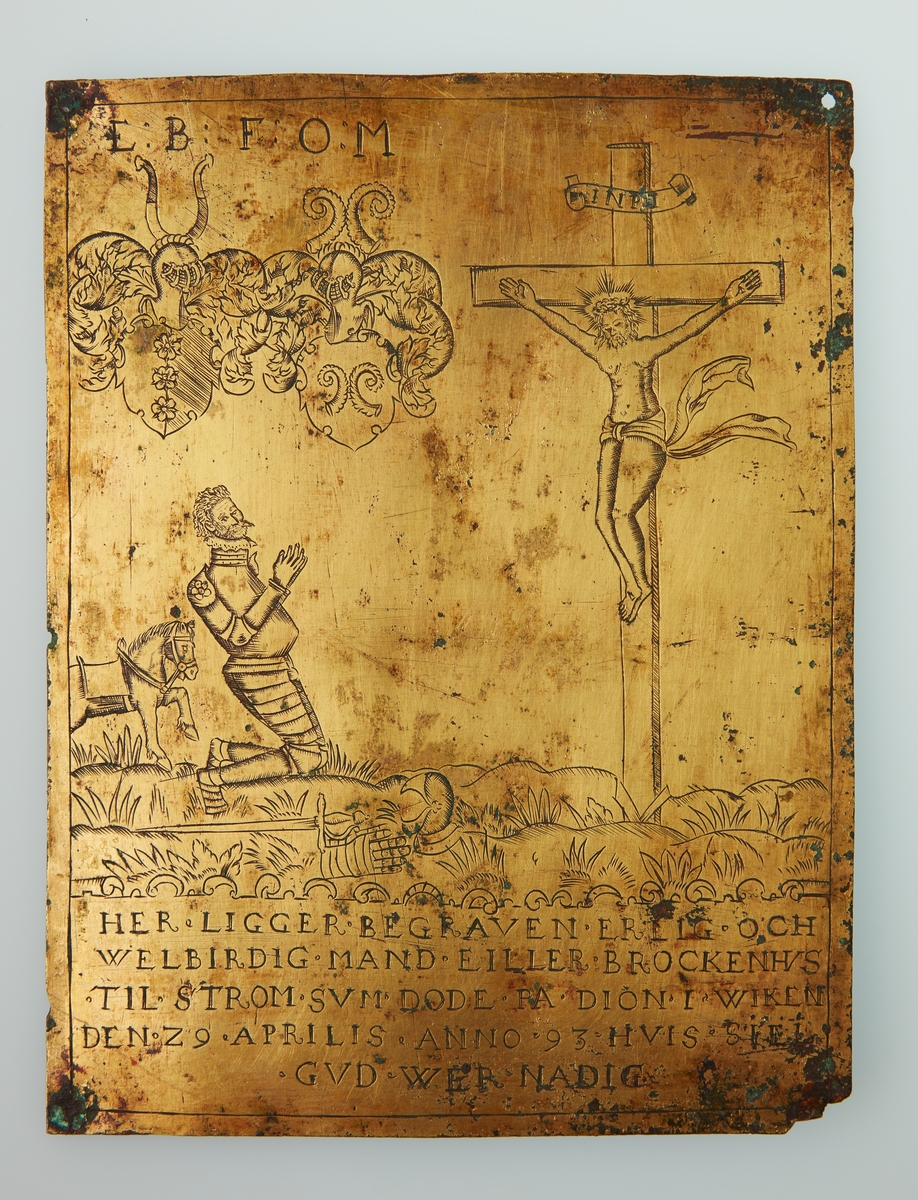 E · B · F · O · M
INRI
HER · LIGGER · BEGRAVEN · ERLIG · OCH
WELBIRDIG · MAND · EILLER · BROCKENHVS
· TIL · STROM · SVM · DODE · PA · DION · I · WIKEN
DEN · 29 · APRILIS · ANNO · 93 · HVIS · SIEL
· GVD · WER · NADIG